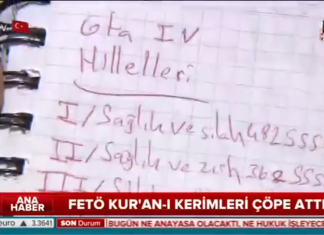 Gta IV
Hilleleri
I/ Sağlık ve silah 482555
II/ Sağlık ve zırh 362555
ANA HABER
FETÖ KUR'AN-I KERİMLERİ ÇÖPE ATTI
EURO 3.3641
BUGÜN NE ANAYASA OLACAKTI, NE HUKUK İŞLEYECEKTİ